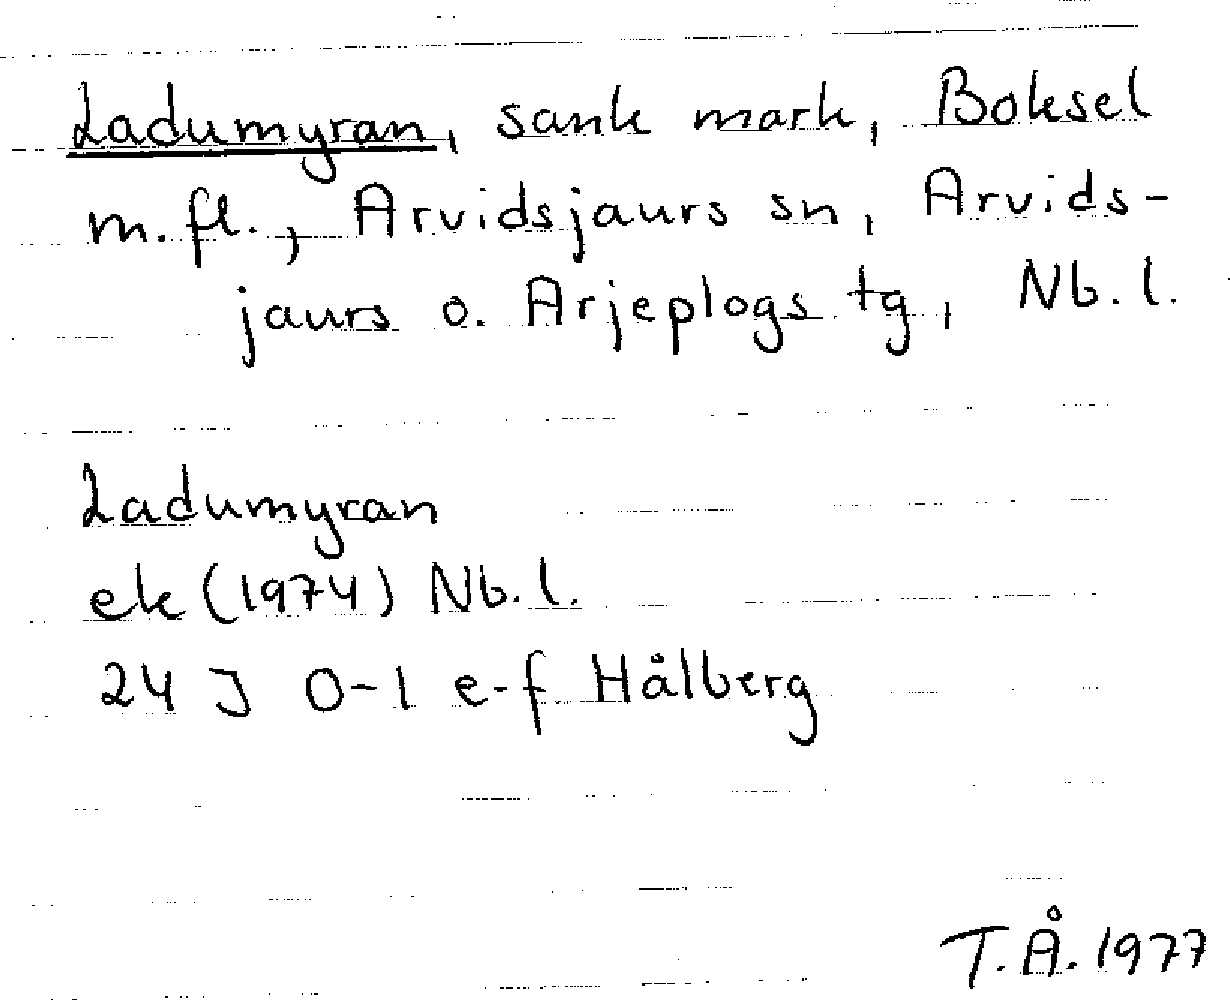 Ladumyran, sank mark, Boksel
m.fl., Arvidsjaurs sn, Arvids-
jaurs o. Arjeplogs tg, Nb.l.
Ladumyran
ek (1974) Nb.l.
24 J 0-1 e-f Hålberg
T.Å. 1977